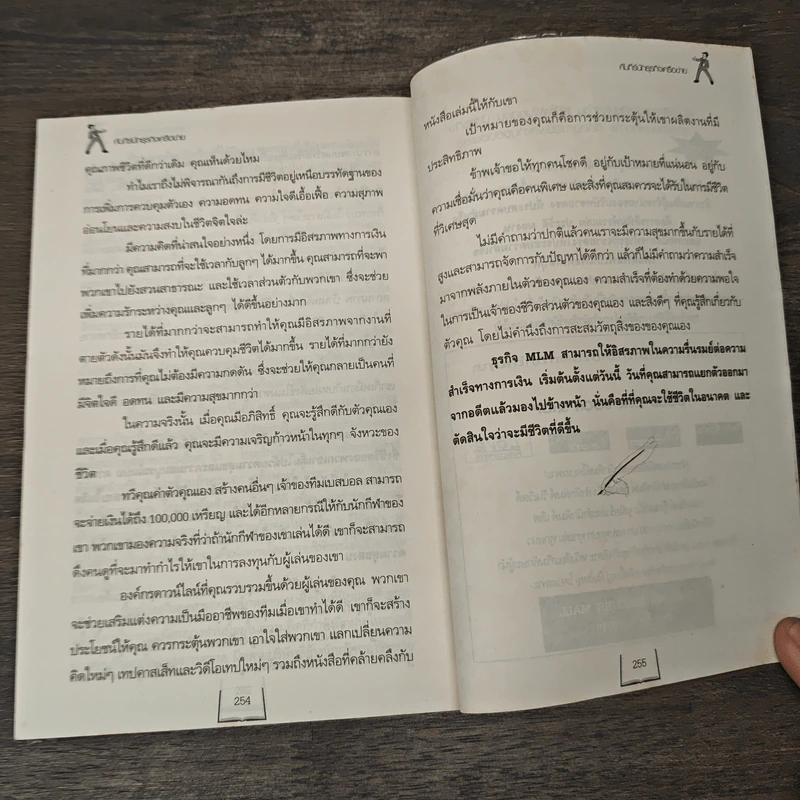 คัมภีร์นักธุรกิจเครือข่าย
คุณภาพชีวิตที่ดีกว่าเดิม คุณเห็นด้วยไหม
ทำไมเราถึงไม่พิจารณากันถึงการมีชีวิตอยู่เหนือบรรทัดฐานของ
การเพิ่มการควบคุมตัวเอง ความอดทน ความใจดีเอื้อเฟื้อ ความสุภาพ
อ่อนโยนและความสงบในชีวิตจิตใจล่ะ
มีความคิดที่น่าสนใจอย่างหนึ่ง โดยการมีอิสรภาพทางการเงิน
ที่มากกว่า คุณสามารถที่จะใช้เวลากับลูกๆ ได้มากขึ้น คุณสามารถที่จะพา
พวกเขาไปยังสวนสาธารณะ และใช้เวลาส่วนตัวกับพวกเขา ซึ่งจะช่วย
เพิ่มความรักระหว่างคุณและลูกๆ ได้ดีขึ้นอย่างมาก
รายได้ที่มากกว่าจะสามารถทำให้คุณมีอิสรภาพจากงานที่
ตายตัวดังนั้นมันจึงทำให้คุณควบคุมชีวิตได้มากขึ้น รายได้ที่มากกว่ายัง
หมายถึงการที่คุณไม่ต้องมีความกดดัน ซึ่งจะช่วยให้คุณกลายเป็นคนที่
มีจิตใจดี อดทน และมีความสุขมากกว่า
ในความจริงนั้น เมื่อคุณมีอภิสิทธิ์ คุณจะรู้สึกดีกับตัวคุณเอง
และเมื่อคุณรู้สึกดีแล้ว คุณจะมีความเจริญก้าวหน้าในทุกๆ จังหวะของ
ชีวิต
ทวีคุณค่าตัวคุณเอง สร้างคนอื่นๆ เจ้าของทีมเบสบอล สามารถ
จะจ่ายเงินได้ถึง 100,000 เหรียญ และได้อีกหลายกรณีให้กับนักกีฬาของ
เขา พวกเขามองความจริงที่ว่าถ้านักกีฬาของเขาเล่นได้ดี เขาก็จะสามารถ
ดึงคนดูที่จะมาทำกำไรให้เขาในการลงทุนกับผู้เล่นของเขา
องค์กรดาวน์ไลน์ที่คุณรวบรวมขึ้นด้วยผู้เล่นของคุณ พวกเขา
จะช่วยเสริมแต่งความเป็นมืออาชีพของทีมเมื่อเขาทำได้ดี เขาก็จะสร้าง
ประโยชน์ให้คุณ ควรกระตุ้นพวกเขา เอาใจใส่พวกเขา แลกเปลี่ยนความ
คิดใหม่ๆ เทปคาสเส็ทและวิดีโอเทปใหม่ๆ รวมถึงหนังสือที่คล้ายคลึงกับ
254
คัมภีร์นักธุรกิจเครือข่าย
หนังสือเล่มนี้ให้กับเขา
เป้าหมายของคุณก็คือการช่วยกระตุ้นให้เขาผลิตงานที่มี
ประสิทธิภาพ
ข้าพเจ้าขอให้ทุกคนโชคดี อยู่กับเป้าหมายที่แน่นอน อยู่กับ
ความเชื่อมั่นว่าคุณคือคนพิเศษ และสิ่งที่คุณสมควรจะได้รับในการมีชีวิต
ที่วิเศษสุด
ไม่มีคำถามว่าปกติแล้วคนเราจะมีความสุขมากขึ้นกับรายได้ที่
สูงและสามารถจัดการกับปัญหาได้ดีกว่า แล้วก็ไม่มีคำถามว่าความสำเร็จ
มาจากพลังภายในตัวของคุณเอง ความสำเร็จที่ต้องทำด้วยความพอใจ
ในการเป็นเจ้าของชีวิตส่วนตัวของคุณเอง และสิ่งดีๆ ที่คุณรู้สึกเกี่ยวกับ
ตัวคุณ โดยไม่คำนึงถึงการสะสมวัตถุสิ่งของของคุณเอง
ธุรกิจ MLM สามารถให้อิสรภาพในความรื่นรมย์ต่อความ
สำเร็จทางการเงิน เริ่มต้นตั้งแต่วันนี้ วันที่คุณสามารถแยกตัวออกมา
จากอดีตแล้วมองไปข้างหน้า นั่นคือที่ที่คุณจะใช้ชีวิตในอนาคต และ
ตัดสินใจว่าจะมีชีวิตที่ดีขึ้น
255